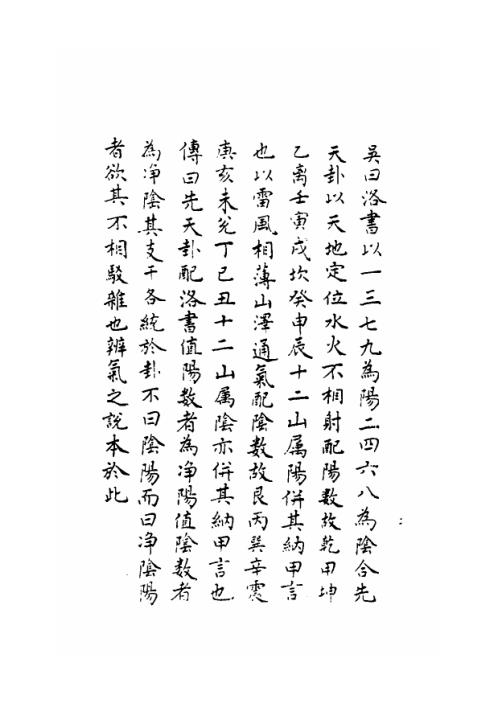 吳曰洛書以一三七九為陽二四六八為陰合先
天卦以天地定位水火不相射配陽數故乾甲坤
乙離壬寅戌坎癸申辰十二山属陽併其納甲言
也以雷風相薄山澤通氣配陰數故艮丙巽辛震
庚亥未兌丁巳丑十二山属陰亦併其納甲言也
傳曰先天卦配洛書值陽數者為净陽值陰數者
為净陰其支干各統於卦不曰陰陽而曰净陰陽
者欲其不相駁雜也辨氣之說本於此